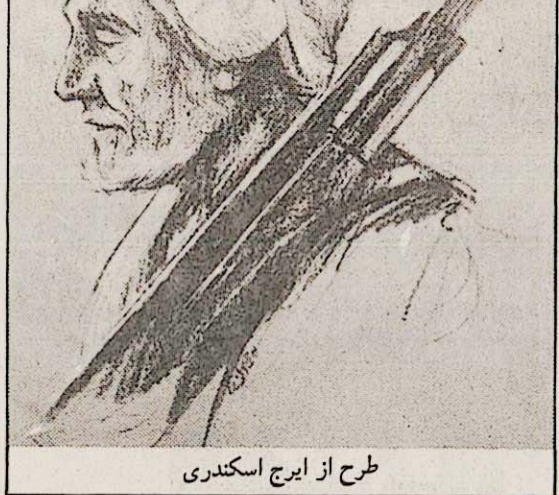 طرح از ایرج اسکندری